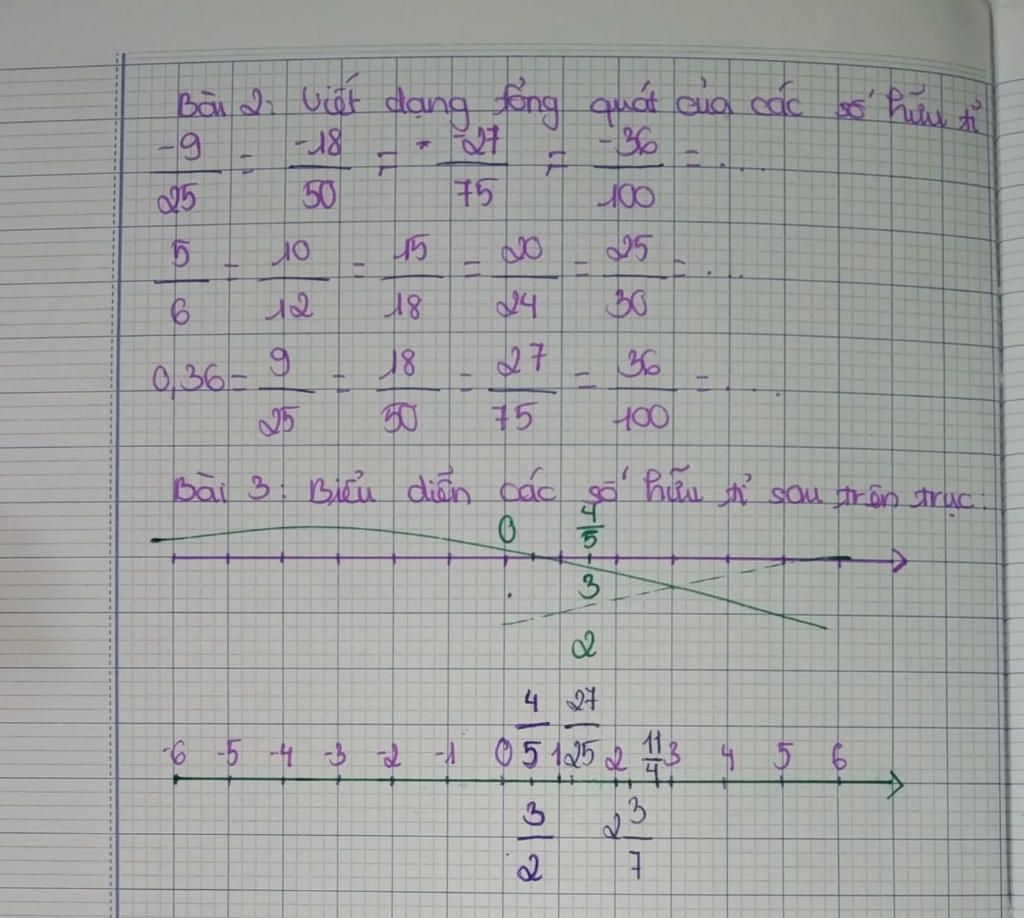 Bài 2: Viết dạng tổng quát của các số hữu tỉ
-9/25 = -18/50 = -27/75 = -36/100 = ....
5/6 = 10/12 = 15/18 = 20/24 = 25/30 = ...
0,36 = 9/25 = 18/50 = 27/75 = 36/100 = ...
Bài 3: Biểu diễn các số hữu tỉ sau trên trục.
0 4/5
3/2
4/5 27/25 11/4
-6 -5 -4 -3 -2 -1 0 1 2 3 4 5 6
3/2 2 3/7